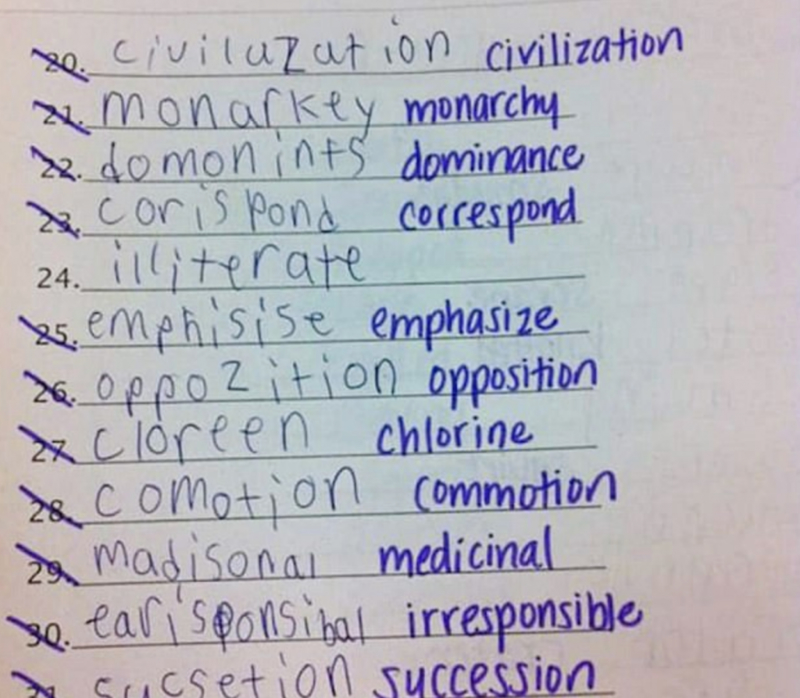 20. civiluzation civilization
21. monarkey monarchy
22. domonints dominance
23. corispond correspond
24. illiterate
25. emphisise emphasize
26. oppozition opposition
27. cloreen chlorine
28. comotion commotion
29. madisonal medicinal
30. earisponsibal irresponsible
31. sucsetion succession